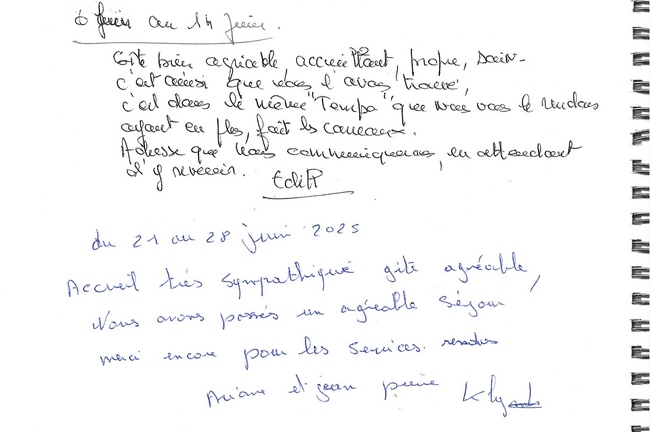 6 juin au 14 juin.
Gîte bien agréable, accueillant, propre, sain.
c'est ainsi que nous l'avons trouvé,
c'est dans le même "Temps" que nous vous le rendons
ayant en plus, fait les carreaux.
Adresse que nous communiquerons, en attendant
d'y revenir. Edith
du 21 au 28 juin 2025
Accueil très sympathique gîte agréable,
Nous avons passés un agréable séjour
merci encore pour les services. rendus
Ariane et jean pierre